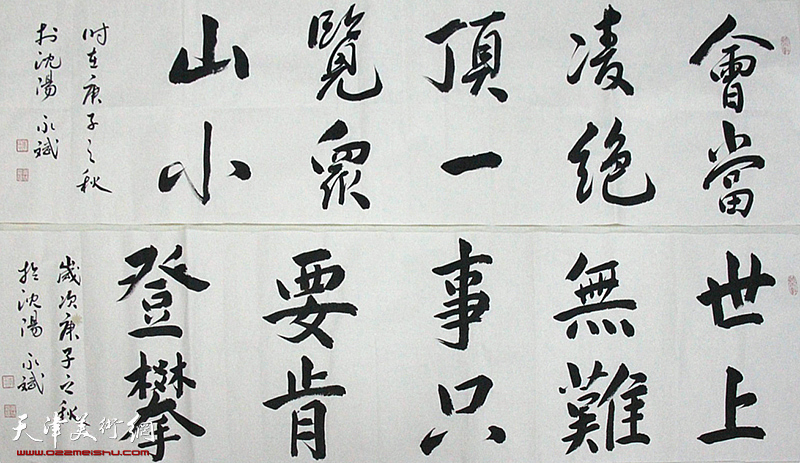 會當
凌絕
頂一
覽眾
山小
時在庚子之秋
於沈陽 永斌
世上
無難
事只
要肯
登攀
歲次庚子之秋
於沈陽 永斌
天津美術網
www.022meishu.com